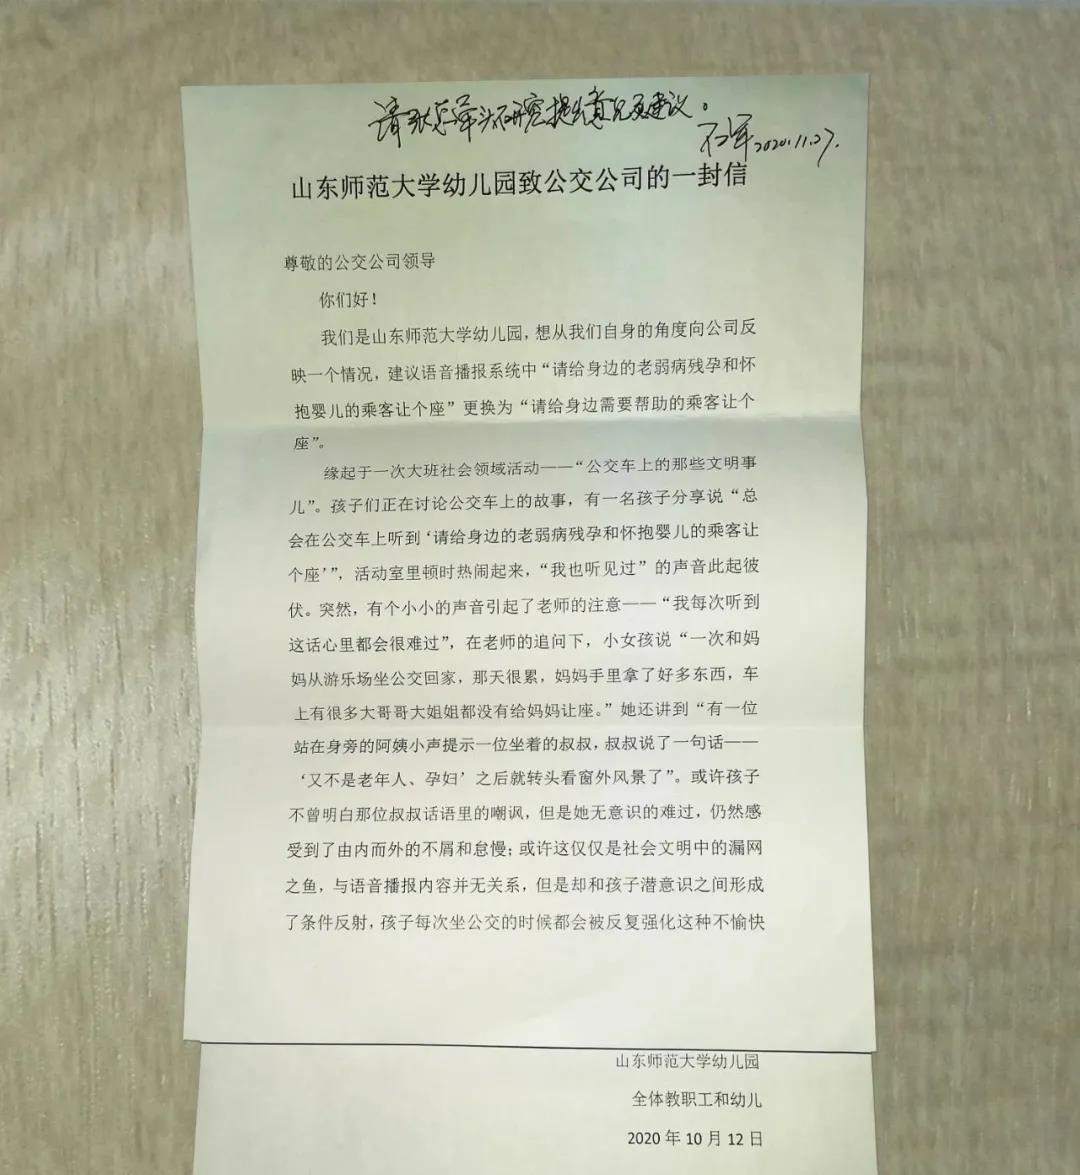 请张总牵头研究提出意见及建议。
石军 2020.11.27.
山东师范大学幼儿园致公交公司的一封信
尊敬的公交公司领导
你们好！
我们是山东师范大学幼儿园，想从我们自身的角度向公司反
映一个情况，建议语音播报系统中“请给身边的老弱病残孕和怀
抱婴儿的乘客让个座”更换为“请给身边需要帮助的乘客让个
座”。
缘起于一次大班社会领域活动——“公交车上的那些文明事
儿”。孩子们正在讨论公交车上的故事，有一名孩子分享说“总
会在公交车上听到‘请给身边的老弱病残孕和怀抱婴儿的乘客让
个座’”，活动室里顿时热闹起来，“我也听见过”的声音此起彼
伏。突然，有个小小的声音引起了老师的注意——“我每次听到
这话心里都会很难过”，在老师的追问下，小女孩说“一次和妈
妈从游乐场坐公交回家，那天很累，妈妈手里拿了好多东西，车
上有很多大哥哥大姐姐都没有给妈妈让座。”她还讲到“有一位
站在身旁的阿姨小声提示一位坐着的叔叔，叔叔说了一句话——
‘又不是老年人、孕妇’之后就转头看窗外风景了”。或许孩子
不曾明白那位叔叔话语里的嘲讽，但是她无意识的难过，仍然感
受到了由内而外的不屑和怠慢；或许这仅仅是社会文明中的漏网
之鱼，与语音播报内容并无关系，但是却和孩子潜意识之间形成
了条件反射，孩子每次坐公交的时候都会被反复强化这种不愉快
山东师范大学幼儿园
全体教职工和幼儿
2020 年 10 月 12 日